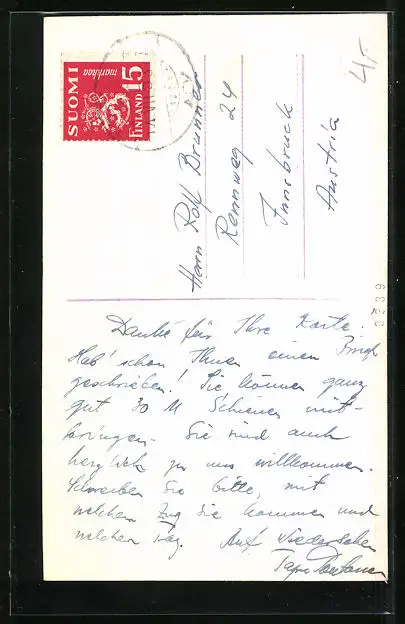 SUOMI
markkaa
15
FINLAND
4,-
Herrn Rolf Brunner
Rennweg 24
Innsbruck
Austria
3339
Danke für Ihre Karte.
Hab' schon Ihnen einen Brief
geschrieben! Sie können ganz
gut 30 M Schienen mit-
bringen. Sie sind auch
herzlich zu uns willkommen.
Schreiben Sie bitte, mit
welchem Zug Sie kommen und
welchen Tag. Auf Wiedersehen